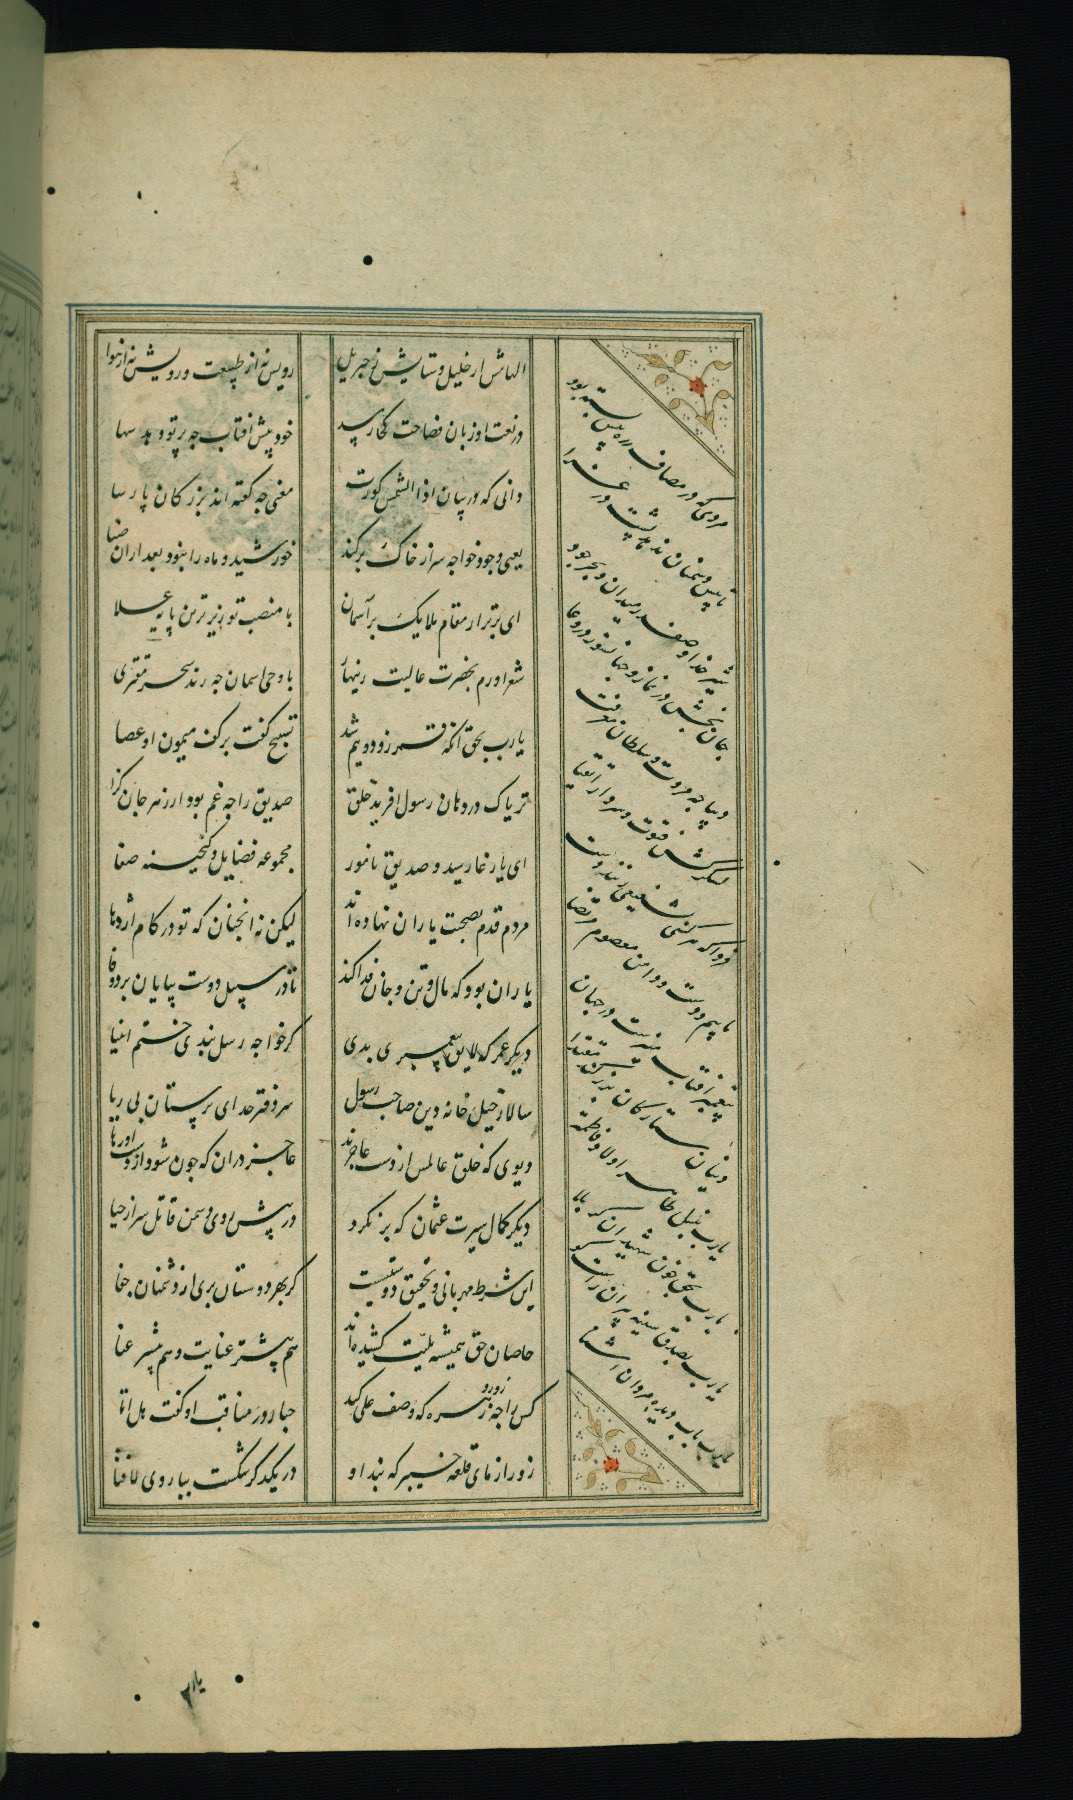 الهامش از خلیل و ستایش ز جبریل رویش نه از طبیعت و رویش نه از هوا
در نعت او زبان فصاحت کجا رسد خود پیش افتاب چه پرتو دهد سها
دانی که در بیان اذا الشمس کورت معنی چه کفته اند بزرکان پارسا
یعنی وجود خواجه سر از خاک برکند خورشید و ماه را نبود بعد ازان ضیا
ای برتر از مقام ملایک بر آسمان با منصب تو زیرترین پایه علا
شعر اورم بحضرت عالیت زینهار با وحی اسمان چه زند سحر مفتری
یارب بحق انکه قمر زو دو نیم شد تسبیح کفت بر کف میمون او عصا
تریاک در دهان رسول افریده خلق صدیق را چه غم بود از زهر جان کزا
ای یار غار سید و صدیق نامور مجموعه فضایل و کنجینه صفا
مردم قدم بصحبت یاران نهاده اند لیکن نه انچنان که تو در کام اژدها
یاران بود که مال و تن و جان فدا کند تا در سبیل دوست بپایان برد وفا
دیکر عمر که لایق پیغمبری بدی کر خواجه رسل نبدی ختم انبیا
سالار خیل خانه دین صاحب رسول سر دفتر خدای پرستان بی ریا
دیوی که خلق عالمش از دست عاجزند عاجز دران که چون شود از دست اورها
دیکر کمال سیرت عثمان که بر نکرد در پیش روی دشمن قاتل سر از حیا
این شرط مهربانی و تحقیق دوستیست کز بهر دوستان بری از دشمنان جفا
خاصان حق همیشه بلیت کشیده اند هم بیشتر عنایت و هم بیشتر عنا
کس را چه زور و زهره که وصف علی کند جبار در مناقب او کفت هل اتا
زور ازمای قلعه خیبر که بند او در یکدکر شکست ببازوی لافتا
مردی که در مصاف زره پیش بسته بود
تا پیش دشمنان ندهد پشت در غزا
شیر خدا و صفدر میدان و بحر جود
جان بخش در نماز و جهانسوز در وغا
دیباچه مروت و سلطان معرفت
لشکر کش فتوت و سردار اتقیا
فردا که هر کسی بشفیعی زنند دست
ماییم و دست و دامن معصوم مرتضا
پیغمبر افتاب منیرست در جهان
وینان ستارکان بزرکند مقتدا
یارب بنسل طاهر اولاد فاطمه
یارب بحق خون شهیدان کربلا
یارب بصدق سینه پیران راست کو
یارب باب دیده مردان اشنا